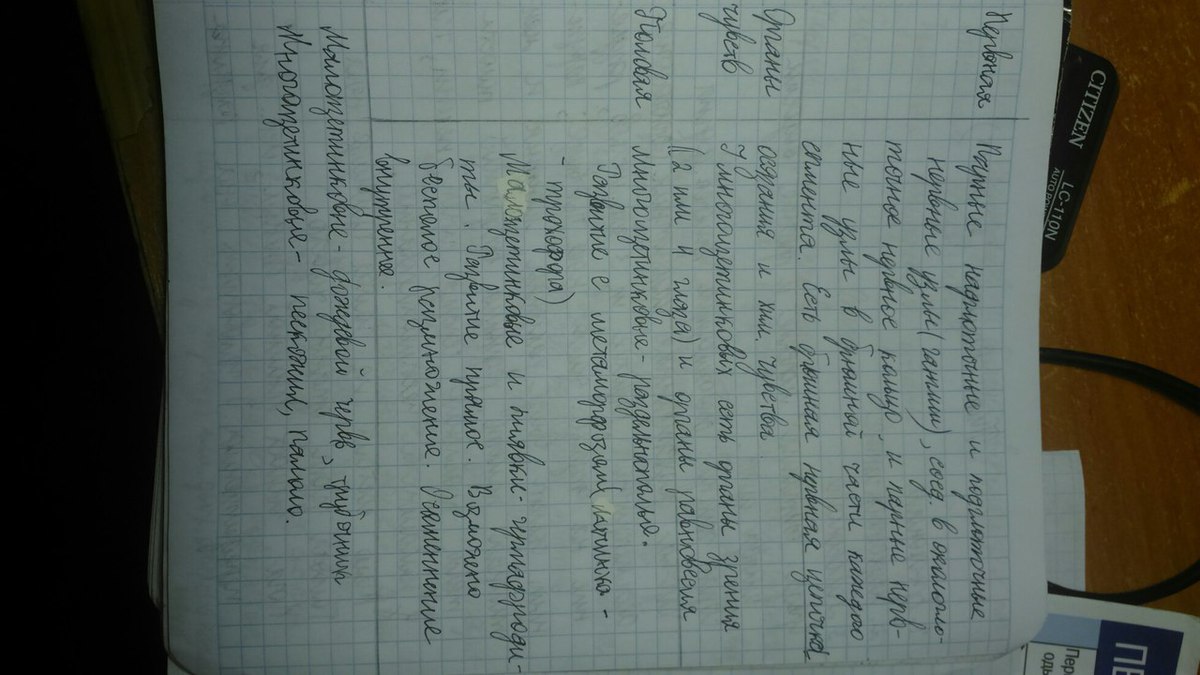 Нервная | Парные надглоточные и подглоточные
нервные узлы (ганглии), соед. в окологло-
точное нервное кольцо, и парные нерв-
ные узлы в брюшной части каждого
сегмента. Есть брюшная нервная цепочка
Органы чувств | осязания и хим. чувства.
У многощетинковых есть органы зрения
(2 или 4 глаза) и органы равновесия
Половая | Многощетинковые - раздельнополы.
Развитие с метаморфозом (личинка -
- трохофора)
Малощетинковые и пиявки - гермафроди-
ты. Развитие прямое. Возможно
бесполое размножение. Осеменение
внутреннее.
Малощетинковые - дождевой червь, трубочник
Многощетинковые - пескожил, палоло.
CITIZEN
LC-110N